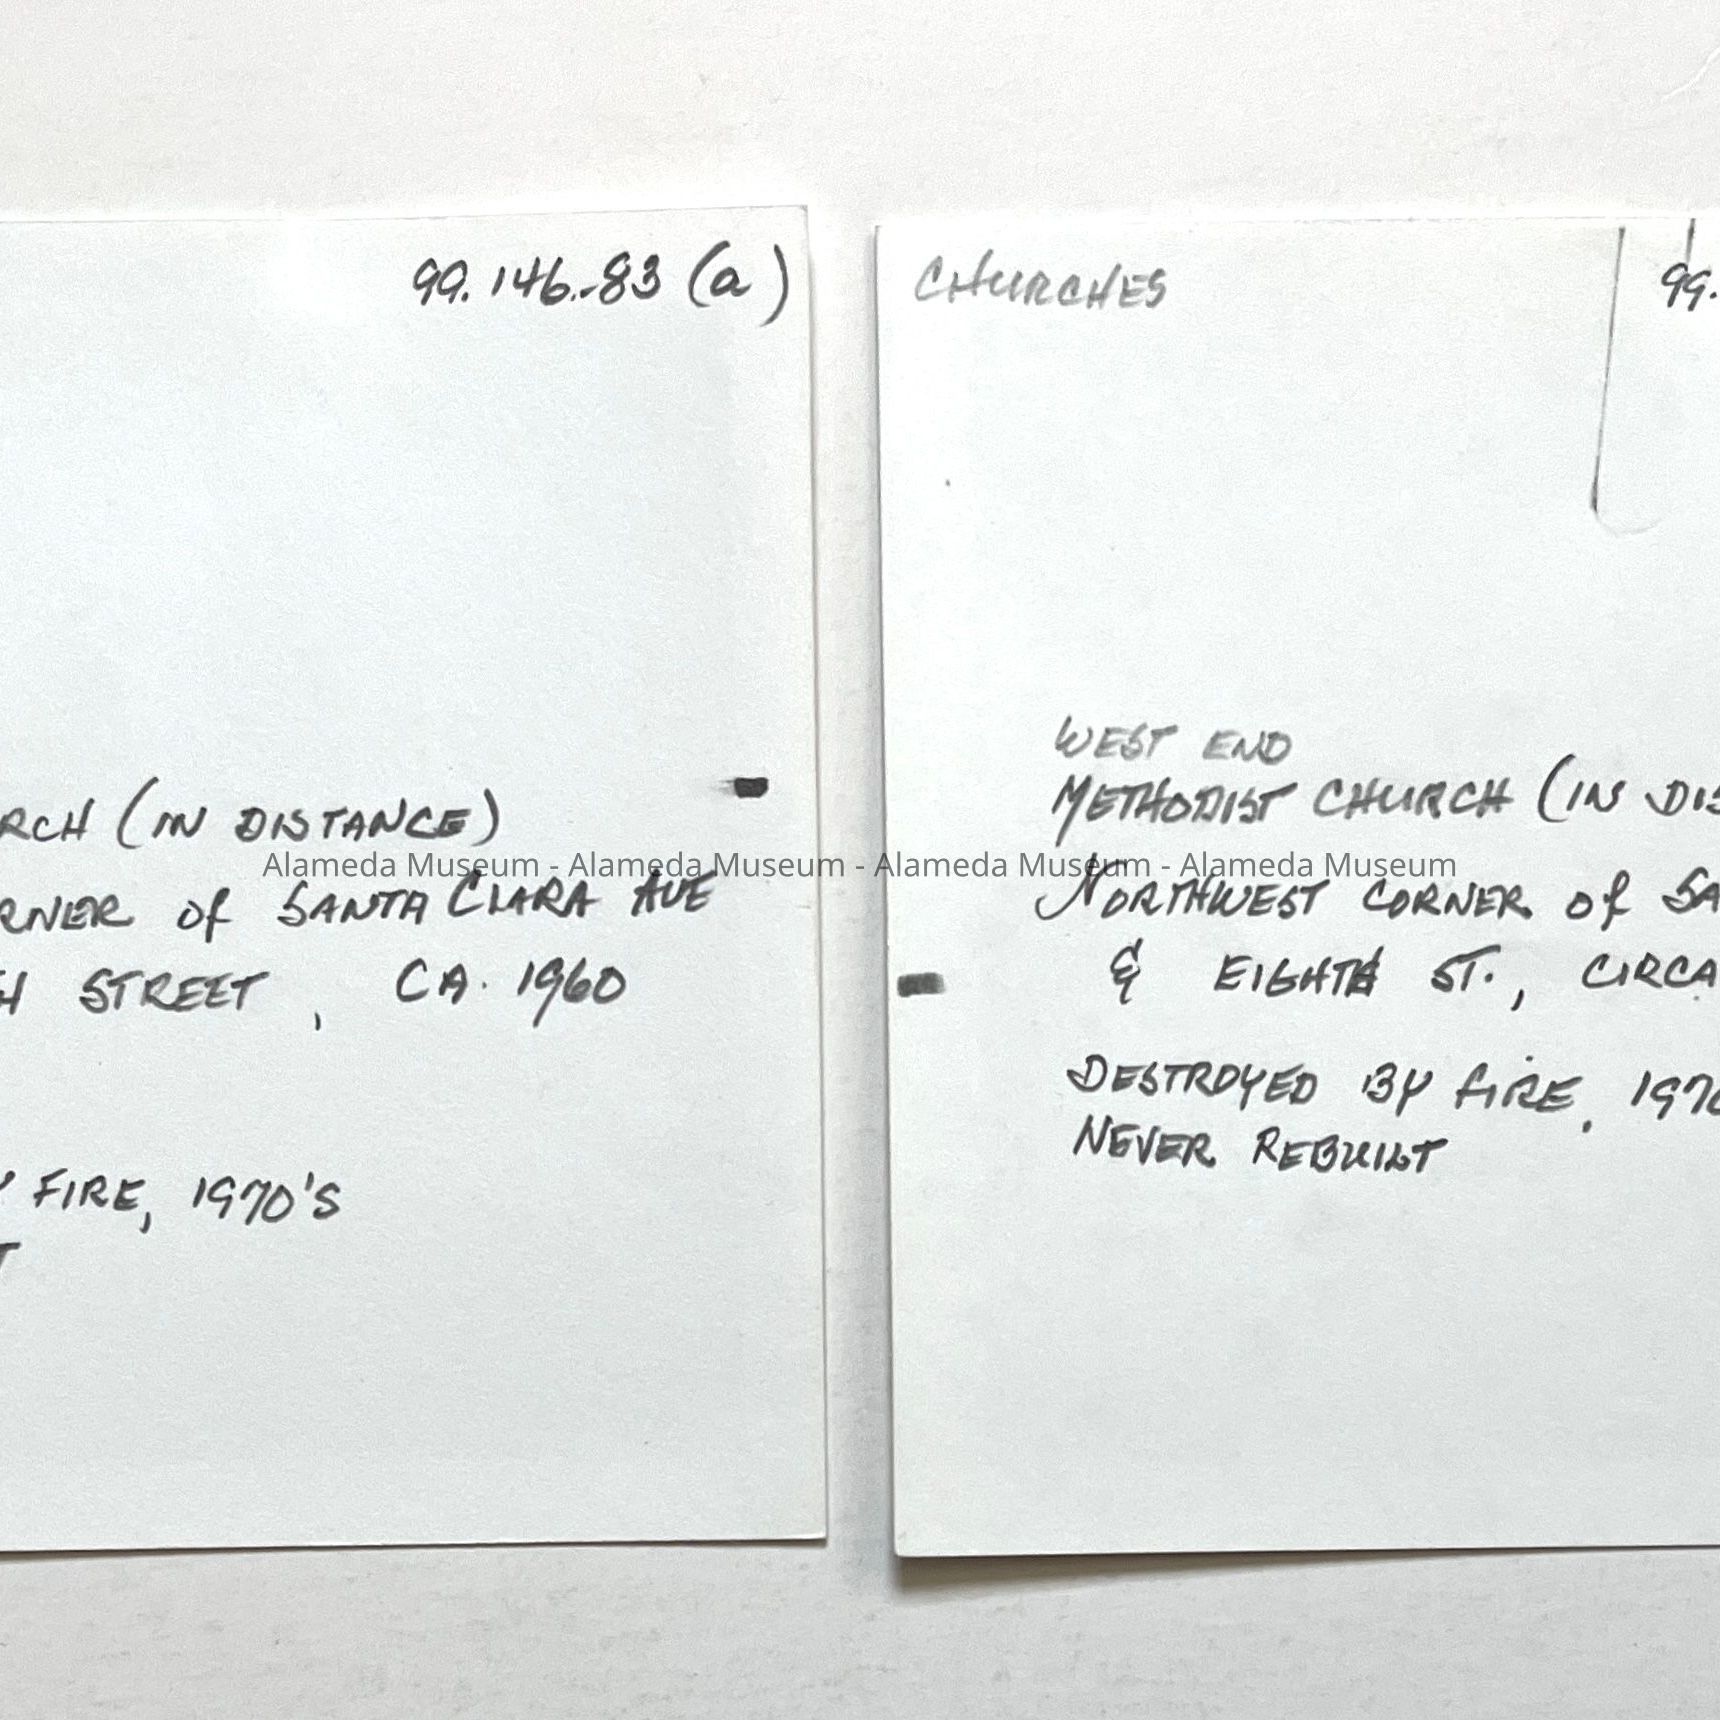 99.146.-83 (a)
RCH (IN DISTANCE)
RNER of SANTA CLARA AVE
H STREET, CA. 1960
Y FIRE, 1970'S
T
CHURCHES
99.
WEST END
METHODIST CHURCH (IN DIS
NORTHWEST CORNER of SA
& EIGHTH ST., CIRCA
DESTROYED BY FIRE, 1970
NEVER REBUILT
Alameda Museum - Alameda Museum - Alameda Museum - Alameda Museum